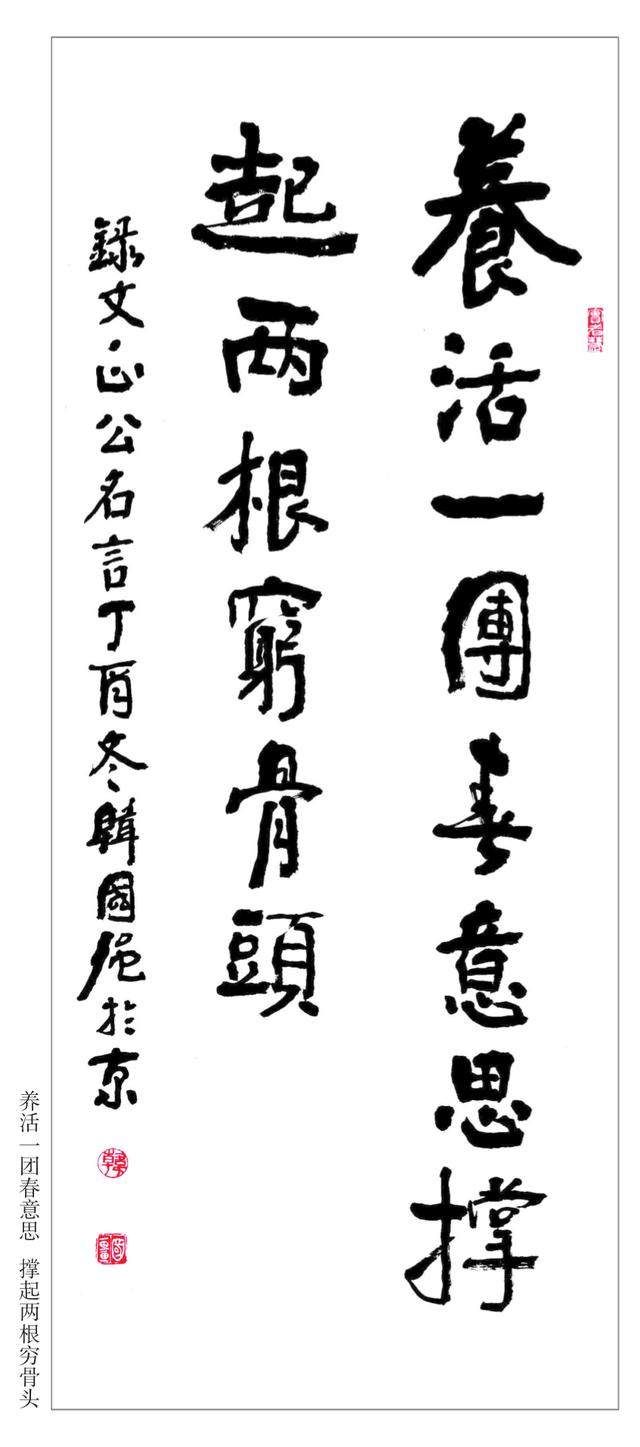 養活一團春意思撐
起两根窮骨頭
録文正公名言丁酉冬韓國强於京
韓
养活一团春意思 撑起两根穷骨头